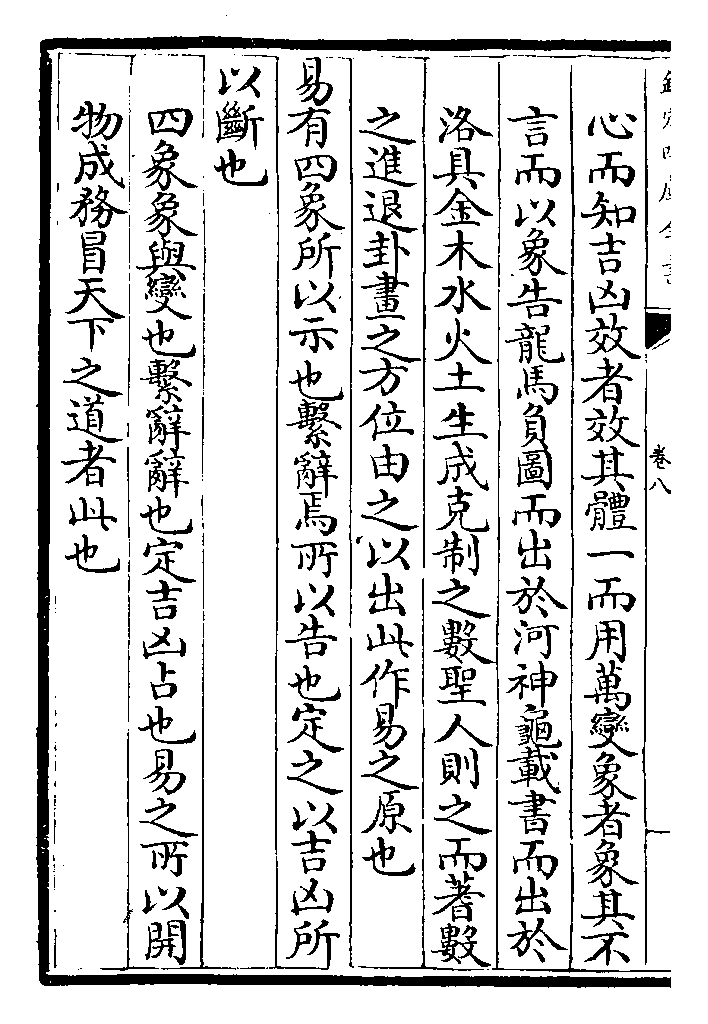 心而知吉凶效者效其體一而用萬變象者象其不
言而以象告龍馬負圖而出於河神龜載書而出於
洛具金木水火土生成克制之數聖人則之而蓍數
之進退卦畫之方位由之以出此作易之原也
易有四象所以示也繫辭焉所以告也定之以吉凶所
以斷也
四象象與變也繫辭辭也定吉凶占也易之所以開
物成務冒天下之道者此也
卷八